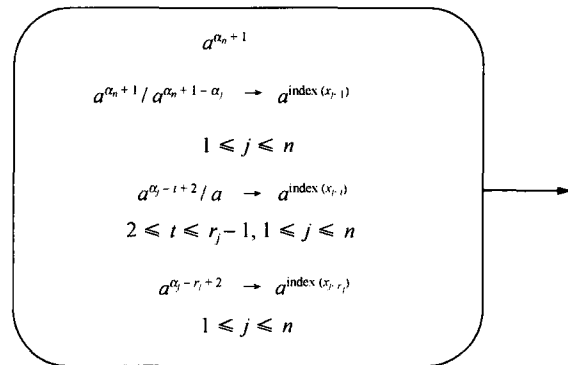 a^{α_n + 1}
a^{α_n + 1} / a^{α_n + 1 - α_j} → a^{index (x_{j, 1})}
1 ⩽ j ⩽ n
a^{α_j - t + 2} / a → a^{index (x_{j, t})}
2 ⩽ t ⩽ r_j - 1, 1 ⩽ j ⩽ n
a^{α_j - r_j + 2} → a^{index (x_{j, r_j})}
1 ⩽ j ⩽ n